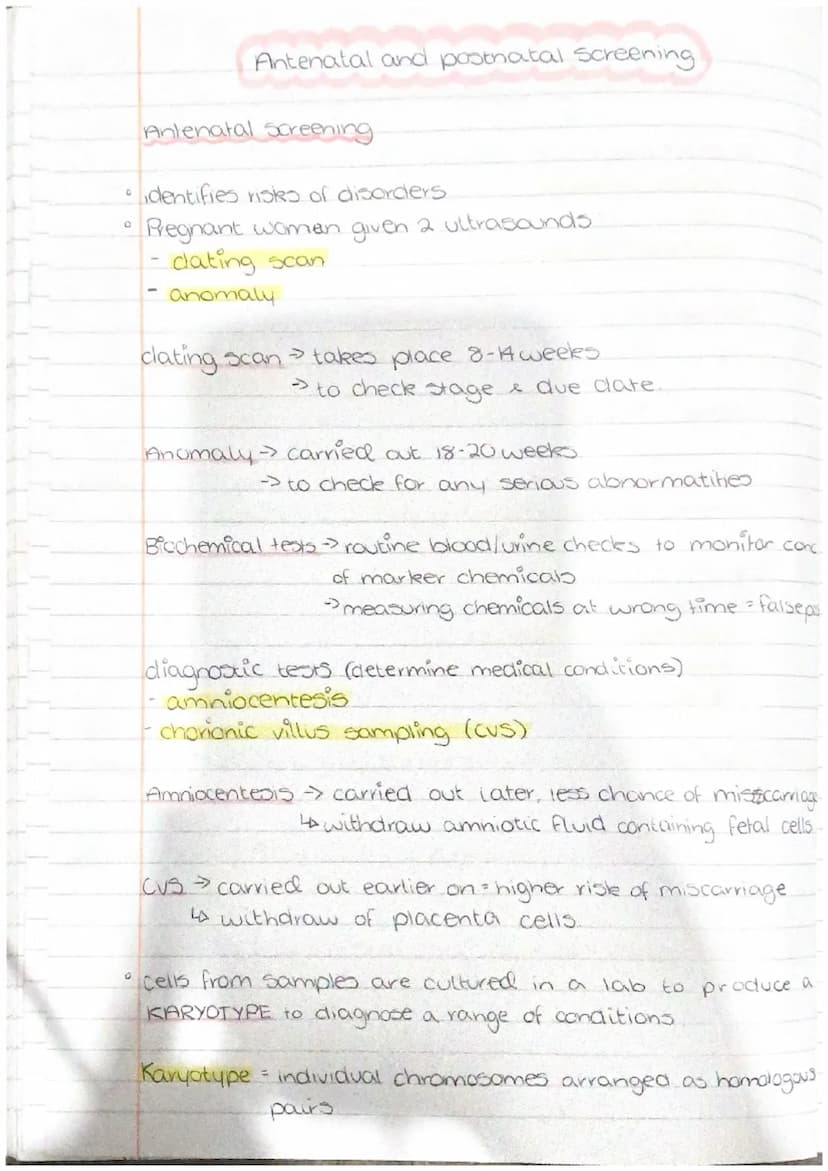 Antenatal and postnatal screening
Antenatal screening
° identifies risks of disorders
° Pregnant women given 2 ultrasounds
- dating scan
- anomaly
dating scan → takes place 8-14 weeks
→ to check stage & due date.
Anomaly → carried out 18-20 weeks
→ to check for any serious abnormatities
Biochemical tests → routine blood/urine checks to monitor conc
of marker chemicals
→ measuring chemicals at wrong time = false pos
diagnostic tests (determine medical conditions)
- amniocentesis
- chorionic villus sampling (CVS)
Amniocentesis → carried out later, less chance of misscarriage
↳ withdraw amniotic fluid containing fetal cells
CVS → carried out earlier on = higher risk of miscarriage
↳ withdraw of placenta cells.
° cells from samples are cultured in a lab to produce a
KARYOTYPE to diagnose a range of conditions
Karyotype = individual chromosomes arranged as homologous
pairs